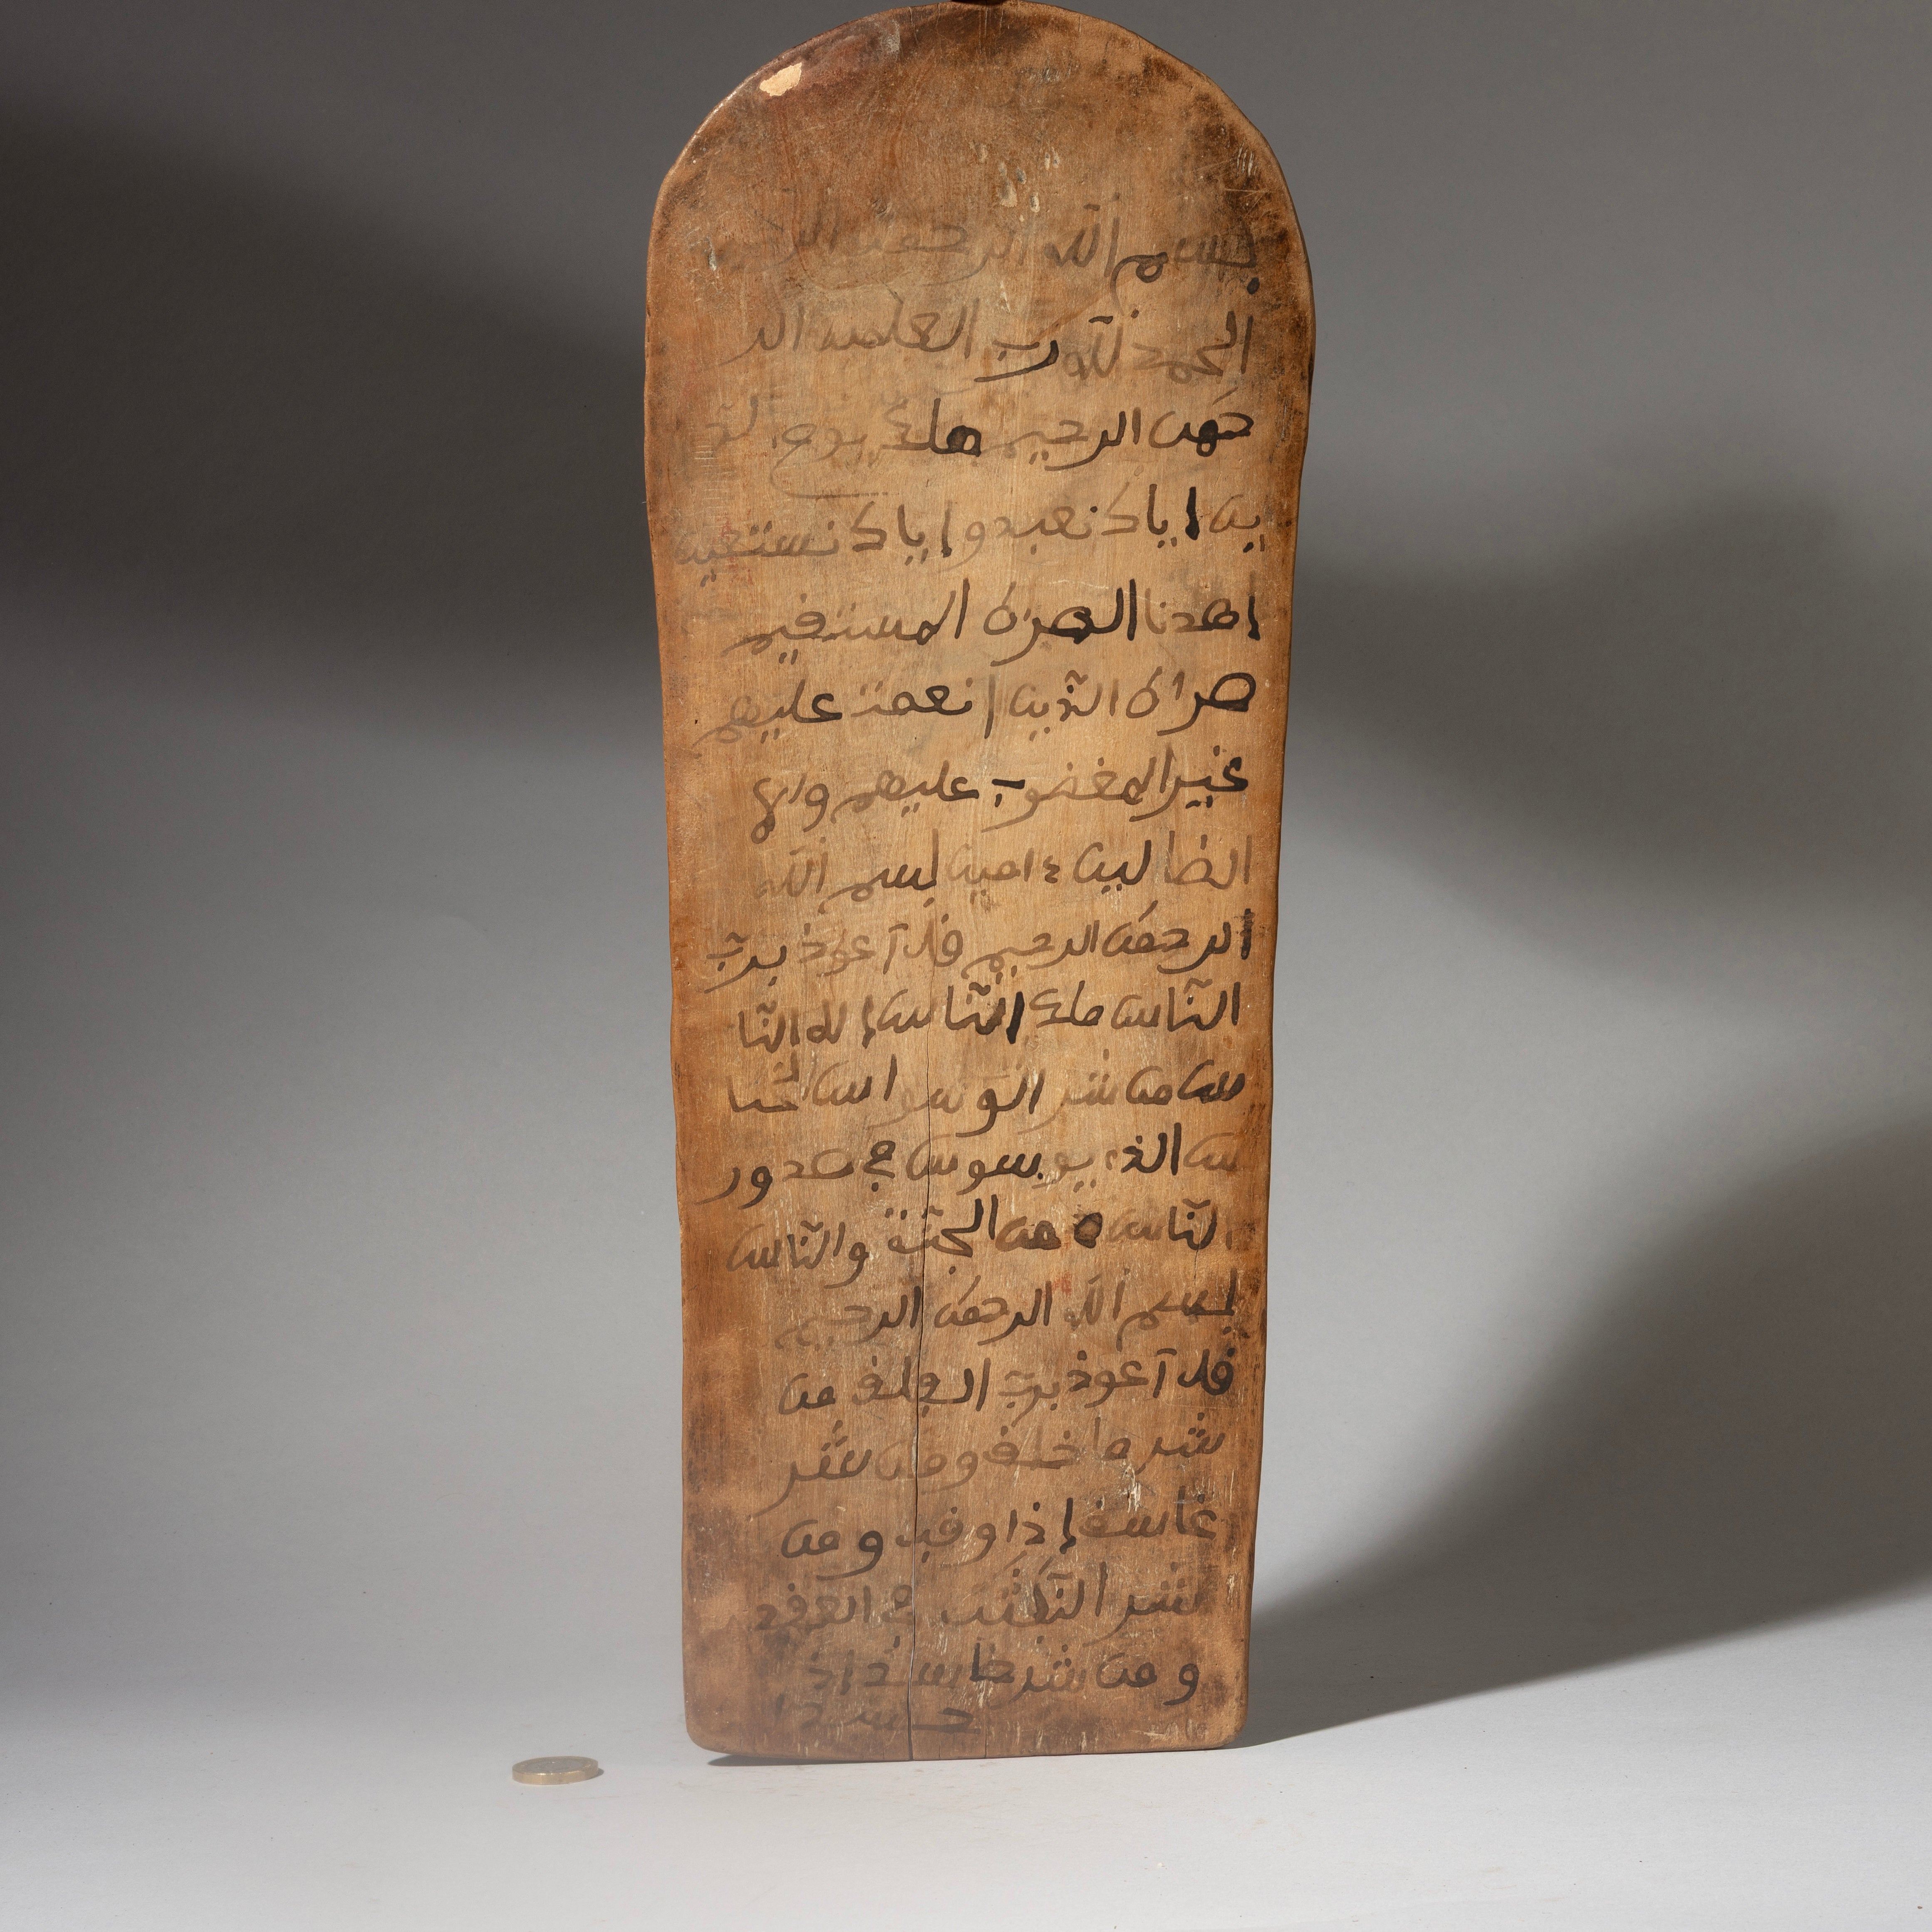 بسم الله الرحمن الرحيم
الحمد لله رب العلمين الر
حمن الرحيم ملك يوم الد
ين إياك نعبد وإياك نستعين
اهدنا الصرط المستفيم
صراط الذين انعمت عليهم
غير المغضوب عليهم ولا
الضالين ءامين بسم الله
الرحمن الرحيم فل آعوذ برب
النّاس ملك النّاس إله النّا
س من شر الوسواس الخنا
س الذے يوسوس في صدور
النّاس من الجنّة والنّاس
بسم الله الرحمن الرحيم
فل آعوذ برب الفلف من
شر ما خلف ومن شر
غاسف إذا وفب ومن
شر النّفّثت في العفد
ومن شر حاسد اذ
حسد ا